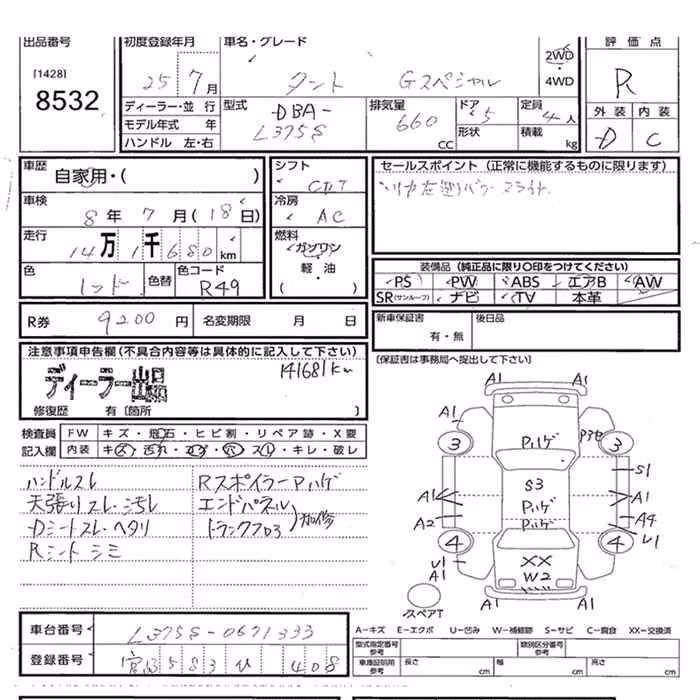 出品番号 初度登録年月 車名・グレード 評価点
[1428]
8532
25年 7月 タント Gスペシャル 2WD・4WD R
ディーラー・並行 型式 排気量 ドア 定員 外装 内装
モデル年式 年 DBA-L375S 660CC 5 4人 D C
ハンドル 左・右 形状 積載 kg
車歴 自家用・( ) シフト CVT セールスポイント(正常に機能するものに限ります)
車検 8年 7月(18日) 冷房 AC
走行 14万1千680km 燃料 ガソリン・軽油( )
装備品(純正品に限り○印をつけてください)
色 レッド 色替 色コード R49 PS PW ABS エアB AW
SR(サンルーフ) ナビ TV 本革
R券 9200円 名変期限 月 日 新車保証書 有・無 後日品
注意事項申告欄(不具合内容等は具体的に記入して下さい) (保証書は事務局へ提出して下さい)
141681km
ディーラー出品
修復歴 有〔箇所 〕
検査員記入欄 FW キズ・飛石・ヒビ割・リペア跡・X要
内装 キズ・汚れ・コゲ・穴・スレ・キレ・破レ
ハンドルスレ RスポイラーPハゲ
天張りスレ・ヨゴレ エンドパネル
Dシートスレ・ヘタリ トランクフロア 加修
Rシートシミ
A1 A1
A1 Pハゲ
3 3
S1
S3
A1 Pハゲ A1
A2 Pハゲ A4
4 4 U1
U1 XX
A1 W2
スペアT A1 A1
車台番号 L375S-0671333
A-キズ E-エクボ U-凹み W-補修跡 S-サビ C-腐食 XX-交換済
型式指定番号 参考 類別区分番号 参考
登録番号 宮崎 583 ひ 408
車庫証明用 参考 長さ cm 幅 cm 高さ cm